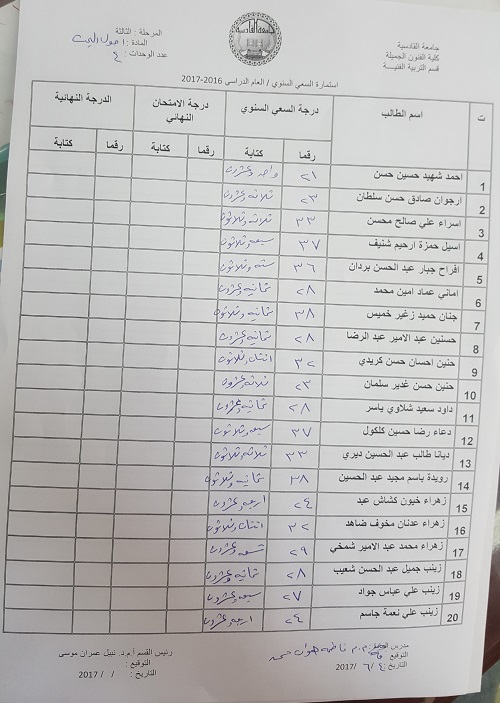 جامعة القادسية
كلية الفنون الجميلة
قسم التربية الفنية
المرحلة : الثالثة
المادة : اصول البحث
عدد الوحدات : ٤
استمارة السعي السنوي / العام الدراسي 2016-2017
ت اسم الطالب درجة السعي السنوي درجة الامتحان النهائي الدرجة النهائية
رقما كتابة رقما كتابة رقما كتابة
1 احمد شهيد حسين حسن ٢١ واحد وعشرون
2 ارجوان صادق حسن سلطان ٢٣ ثلاثه وعشرون
3 اسراء علي صالح محسن ٣٣ ثلاثه وثلاثون
4 اسيل حمزة ارحيم شنيف ٣٧ سبعه وثلاثون
5 افراح جبار عبد الحسن بردان ٣٦ سته وثلاثون
6 اماني عماد امين محمد ٢٨ ثمانيه وعشرون
7 جنان حميد زغير خميس ٣٨ ثمانيه وثلاثون
8 حسنين عبد الامير عبد الرضا ٢٨ ثمانيه وعشرون
9 حنين احسان حسن كريدي ٣٢ اثنان وثلاثون
10 حنين حسن غدير سلمان ٢٣ ثلاثه وعشرون
11 داود سعيد شلاوي ياسر ٢٨ ثمانيه وعشرون
12 دعاء رضا حسين كلكول ٣٧ سبعه وثلاثون
13 ديانا طالب عبد الحسين ديري ٣٣ ثلاثه وثلاثون
14 رويدة باسم مجيد عبد الحسين ٣٨ ثمانيه وثلاثون
15 زهراء خيون كشاش عبد ٢٤ اربعه وعشرون
16 زهراء عدنان مخوف ضاهد ٣٢ اثنان وثلاثون
17 زهراء محمد عبد الامير شمخي ٢٩ تسعه وعشرون
18 زينب جميل عبد الحسن شعيب ٢٨ ثمانيه وعشرون
19 زينب علي عباس جواد ٢٧ سبعه وعشرون
20 زينب علي نعمة جاسم ٢٤ اربعه وعشرون
مدرس المادة م.م فاطمه
التوقيع
التاريخ : ٤ / ٦ /2017
رئيس القسم أ.م.د. نبيل عمران موسى
التوقيع :
التاريخ : / / 2017